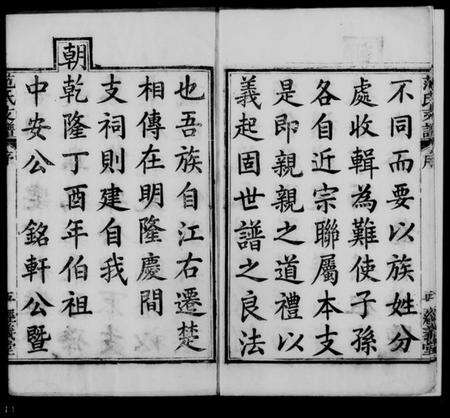 不同而要以族姓分
處收輯為難使子孫
各自近宗聯屬本支
是即親親之道禮以
義起固世譜之良法
也吾族自江右遷楚
相傳在明隆慶間
支祠則建自我
朝乾隆丁酉年伯祖
中安公 銘軒公暨